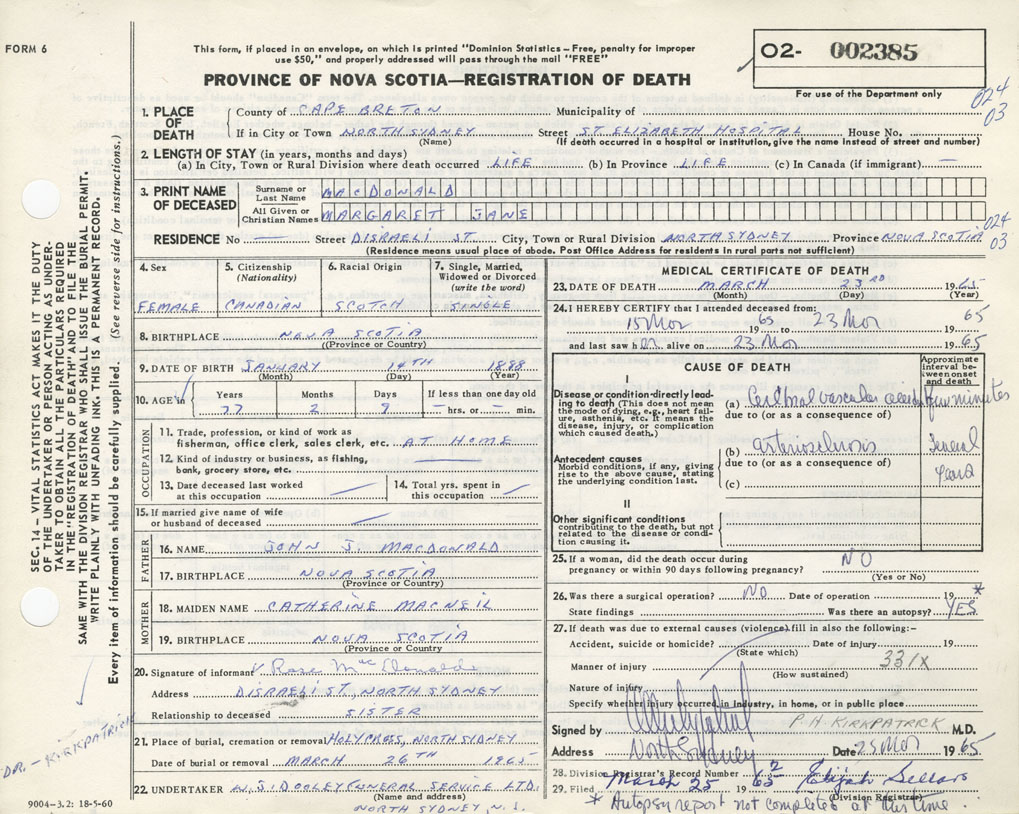 FORM 6
This form, if placed in an envelope, on which is printed "Dominion Statistics – Free, penalty for improper
use $50," and properly addressed will pass through the mail "FREE"
PROVINCE OF NOVA SCOTIA—REGISTRATION OF DEATH
02- 002385
For use of the Department only
024
03
1. PLACE OF DEATH
County of CAPE BRETON Municipality of
If in City or Town NORTH SYDNEY Street ST. ELIZABETH HOSPITAL House No.
(Name) (If death occurred in a hospital or institution, give the name instead of street and number)
2. LENGTH OF STAY (in years, months and days)
(a) In City, Town or Rural Division where death occurred LIFE (b) In Province LIFE (c) In Canada (if immigrant) —
3. PRINT NAME OF DECEASED
Surname or Last Name MACDONALD
All Given or Christian Names MARGARET JANE
RESIDENCE No — Street DISRAELI ST. City, Town or Rural Division NORTH SYDNEY Province NOVA SCOTIA
024
03
(Residence means usual place of abode. Post Office Address for residents in rural parts not sufficient)
4. Sex
FEMALE
5. Citizenship (Nationality)
CANADIAN
6. Racial Origin
SCOTCH
7. Single, Married, Widowed or Divorced (write the word)
SINGLE
8. BIRTHPLACE NOVA SCOTIA
(Province or Country)
9. DATE OF BIRTH JANUARY 14TH 1888
(Month) (Day) (Year)
10. AGE in Years Months Days If less than one day old
77 2 9 — hrs. or — min.
OCCUPATION
11. Trade, profession, or kind of work as
fisherman, office clerk, sales clerk, etc. AT HOME
12. Kind of industry or business, as fishing,
bank, grocery store, etc. —
13. Date deceased last worked
at this occupation —
14. Total yrs. spent in
this occupation —
15. If married give name of wife
or husband of deceased —
FATHER
16. NAME JOHN J. MACDONALD
17. BIRTHPLACE NOVA SCOTIA
(Province or Country)
MOTHER
18. MAIDEN NAME CATHERINE MACNEIL
19. BIRTHPLACE NOVA SCOTIA
(Province or Country
20. Signature of informant Rose MacDonald
Address DISRAELI ST., NORTH SYDNEY
Relationship to deceased SISTER
21. Place of burial, cremation or removal HOLY CROSS, NORTH SYDNEY
Date of burial or removal MARCH 26TH 1965
22. UNDERTAKER W.S. DOOLEY FUNERAL SERVICE LTD.
(Name and address)
NORTH SYDNEY, N.S.
MEDICAL CERTIFICATE OF DEATH
23. DATE OF DEATH MARCH 23RD 1965
(Month) (Day) (Year)
24. I HEREBY CERTIFY that I attended deceased from:
15 Mar 1965 to 23 Mar 1965
and last saw her alive on 23 Mar 1965
CAUSE OF DEATH
Approximate interval between onset and death
I
Disease or condition directly leading to death (This does not mean the mode of dying, e.g., heart failure, asthenia, etc. It means the disease, injury, or complication which caused death.)
(a) Cerebral vascular accident few minutes
due to (or as a consequence of)
Antecedent causes
Morbid conditions, if any, giving rise to the above cause, stating the underlying condition last.
(b) arteriosclerosis Several years
due to (or as a consequence of)
(c)
II
Other significant conditions
contributing to the death, but not related to the disease or condition causing it.
25. If a woman, did the death occur during
pregnancy or within 90 days following pregnancy? NO
(Yes or No)
26. Was there a surgical operation? NO Date of operation 19 *
State findings Was there an autopsy? YES
27. If death was due to external causes (violence) fill in also the following:-
Accident, suicide or homicide? Date of injury 19
(State which)
Manner of injury 331X
(How sustained)
Nature of injury
Specify whether injury occurred in industry, in home, or in public place
Signed by P.A. KIRKPATRICK M.D.
Address North Sydney Date 25 Mar 1965
28. Division Registrar's Record Number 42
29. Filed March 25 1965 Elijah Sellars
(Division Registrar)
* Autopsy report not completed at this time.
SEC. 14 – VITAL STATISTICS ACT MAKES IT THE DUTY
OF THE UNDERTAKER OR PERSON ACTING AS UNDERTAKER TO OBTAIN ALL THE PARTICULARS REQUIRED
IN THE "REGISTRATION OF DEATH" AND TO FILE THE
SAME WITH THE DIVISION REGISTRAR WHO SHALL ISSUE THE BURIAL PERMIT.
WRITE PLAINLY WITH UNFADING INK. THIS IS A PERMANENT RECORD.
Every item of information should be carefully supplied. (See reverse side for instructions.)
DR. – KIRKPATRICK
9004–3.2: 18-5-60